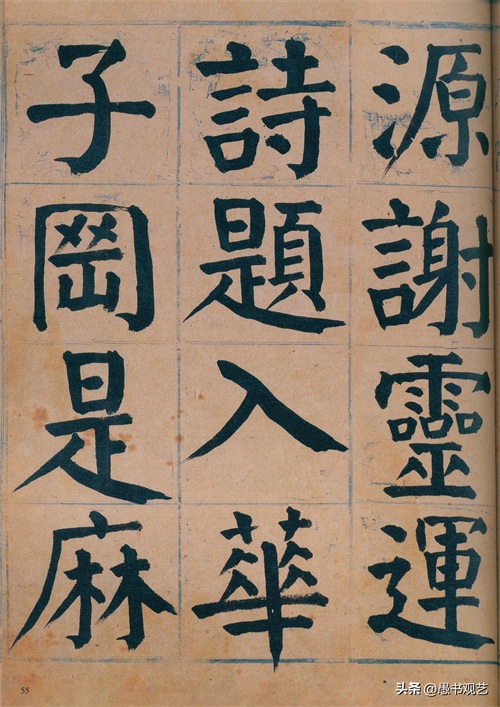 源謝靈運
詩題入華
子岡是麻
55
头条 @愚书观艺